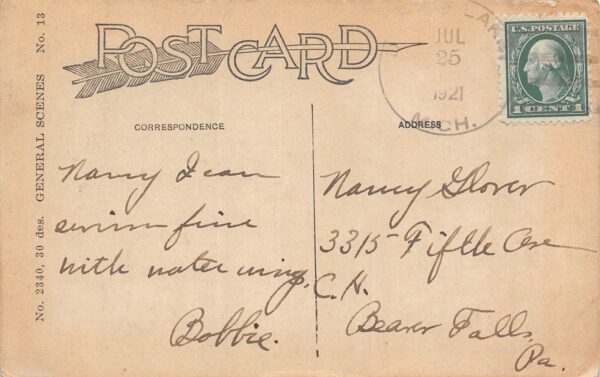 POST CARD
LAK
JUL
25
1921
MICH.
U.S. POSTAGE
1 CENT 1
CORRESPONDENCE
ADDRESS
No. 2340, 30 des. GENERAL SCENES No. 13
Nancy I can
swim fine
with water wings.
Bobbie.
Nancy Glover
3315 Fifth Ave
C.H.
Beaver Falls,
Pa.